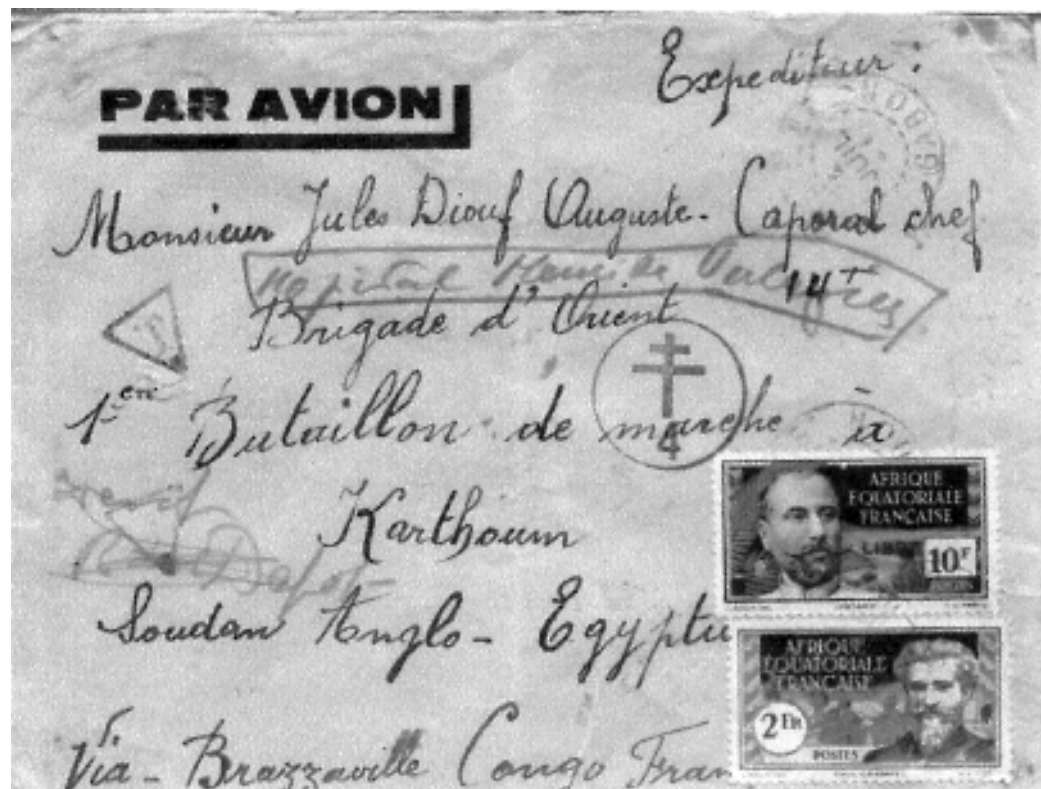 Expediteur :
PAR AVION
GABON
JUIL
Monsieur Jules Diouf Auguste. Caporal chef
Hopital
14
Brigade d'Orient
4
1ere Bataillon de marche à
Karthoum
Soudan Anglo-Egyptie
Via-Brazzaville Congo Fran
AFRIQUE
EQUATORIALE
FRANÇAISE
LIBRE
10F
AFRIQUE
EQUATORIALE
FRANÇAISE
2 Frs
POSTES